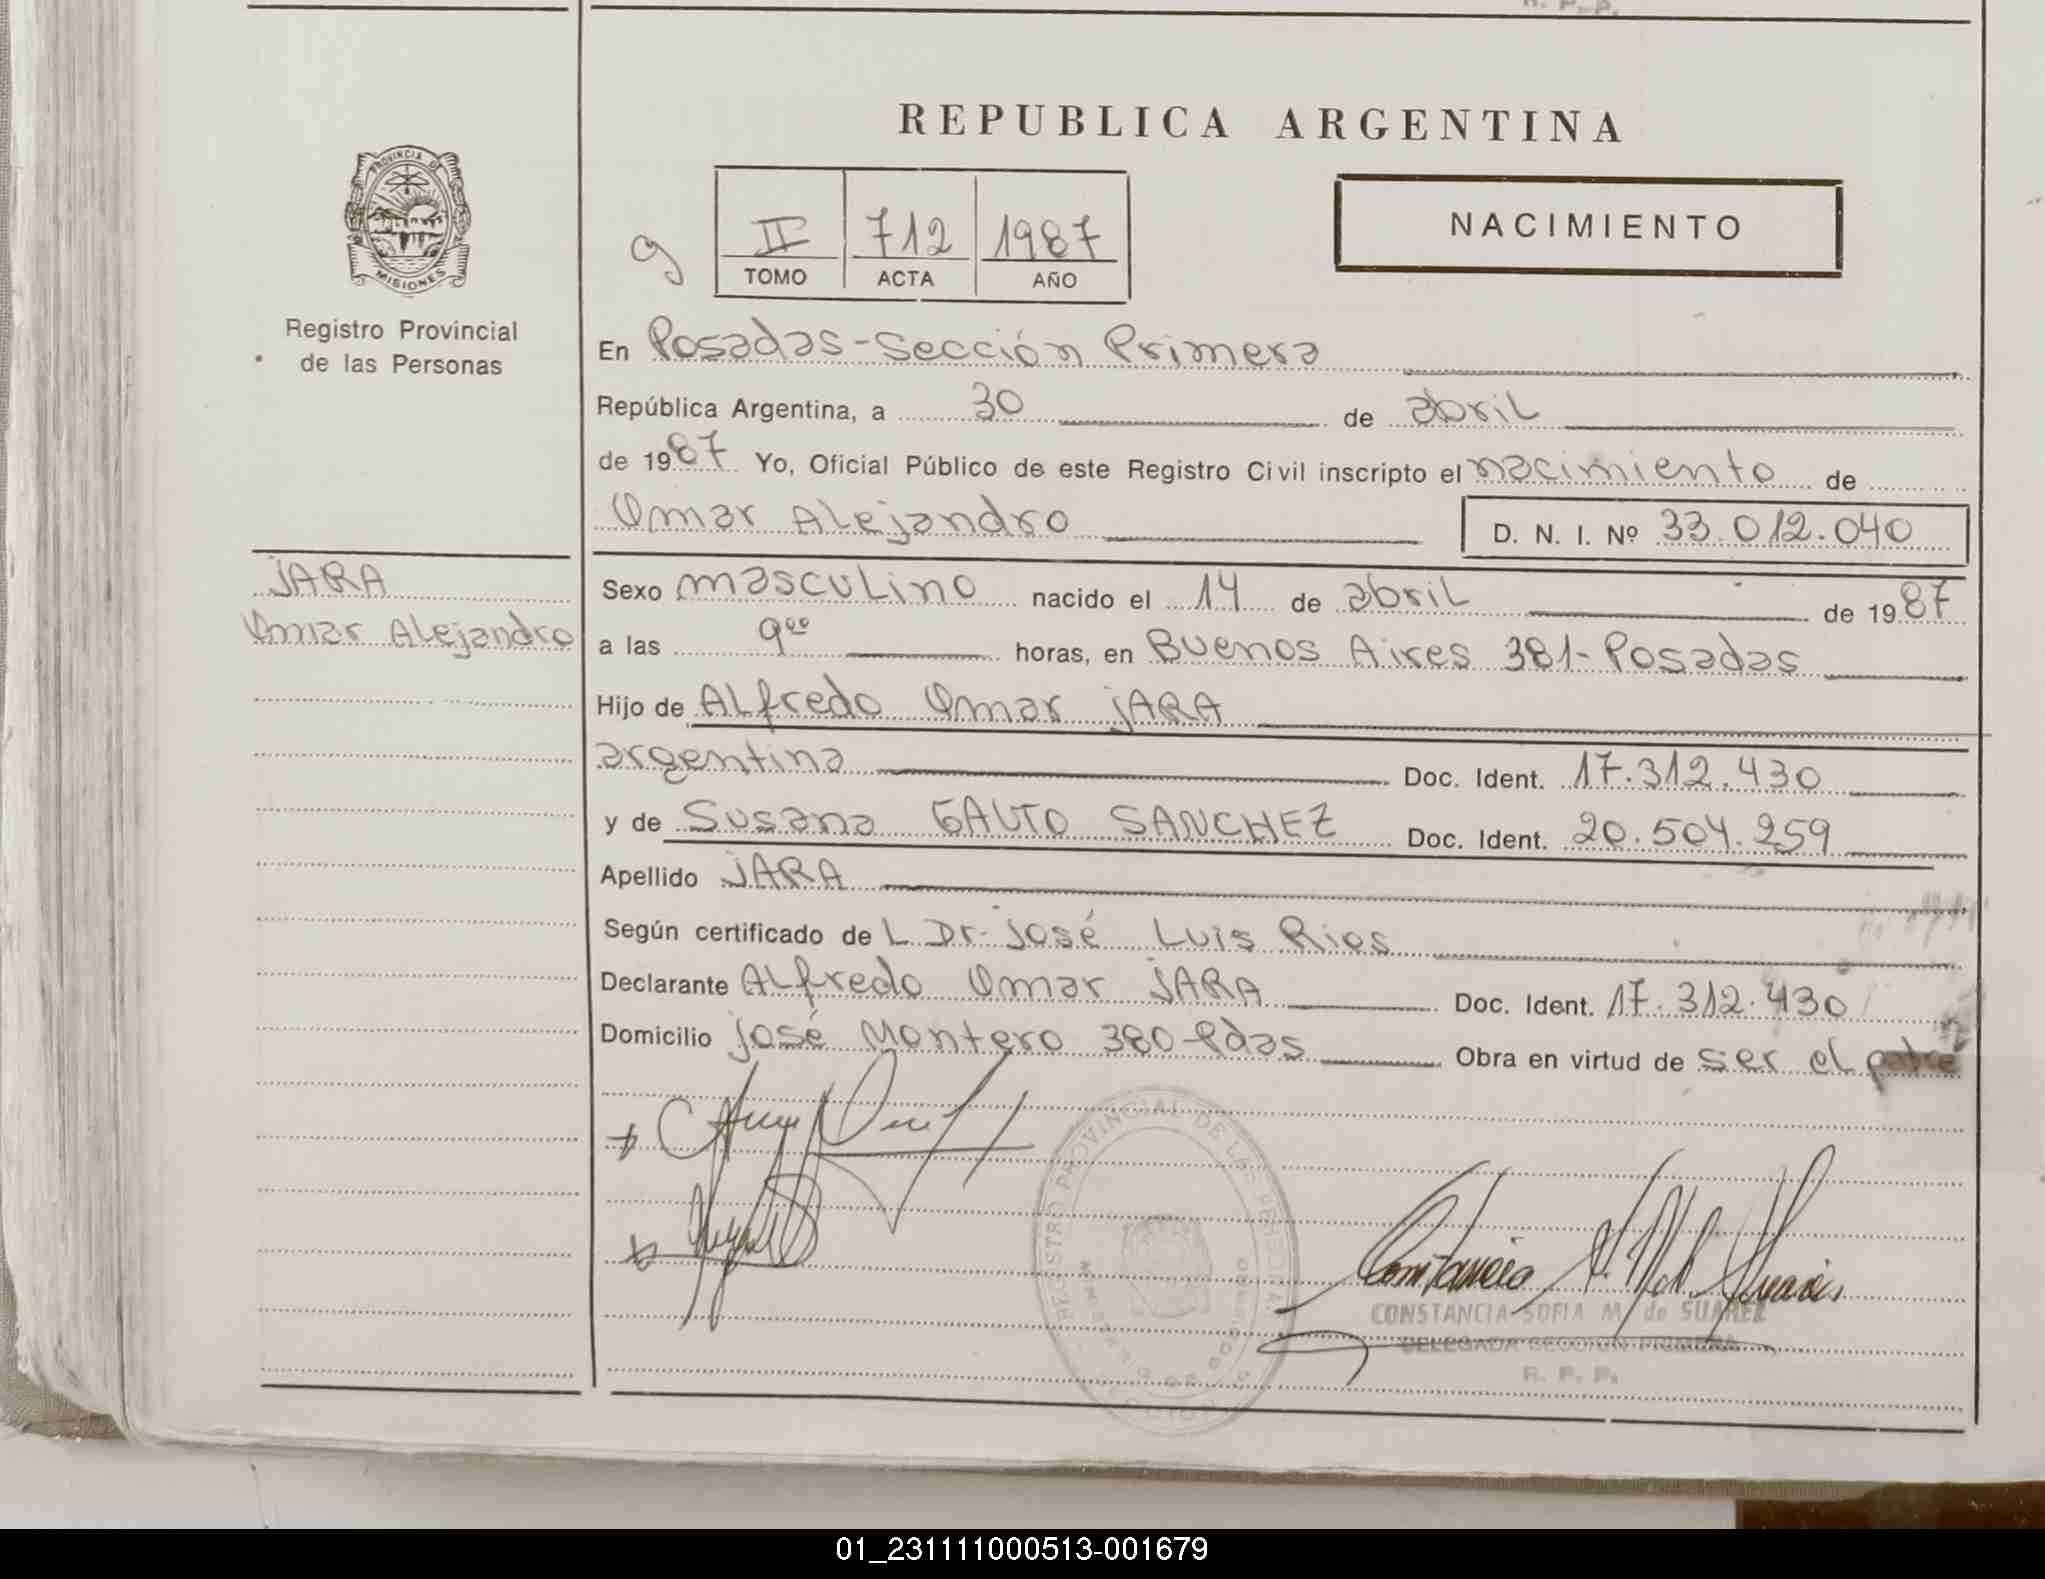 R. P. P.
REPUBLICA ARGENTINA
PROVINCIA DE
MISIONES
Registro Provincial
de las Personas
g
II 712 1987
TOMO ACTA AÑO
NACIMIENTO
En Posadas-Sección Primera
República Argentina, a 30 de abril
de 1987 Yo, Oficial Público de este Registro Civil inscripto el nacimiento de
Omar Alejandro
D. N. I. Nº 33.012.040
JARA
Omar Alejandro
Sexo masculino nacido el 14 de abril de 1987
a las 9 horas, en Buenos Aires 381-Posadas
Hijo de Alfredo Omar JARA
argentina Doc. Ident. 17.312.430
y de Susana GAUTO SANCHEZ Doc. Ident. 20.504.259
Apellido JARA
Según certificado de L Dr. José Luis Rios
Declarante Alfredo Omar JARA Doc. Ident. 17.312.430
Domicilio José Montero 380-Pdas Obra en virtud de ser el padre
REGISTRO PROVINCIAL DE LAS PERSONAS
CONSTANCIA SOFIA M. de SUAREZ
DELEGADA SECCION PRIMERA
R. P. P.
01_231111000513-001679